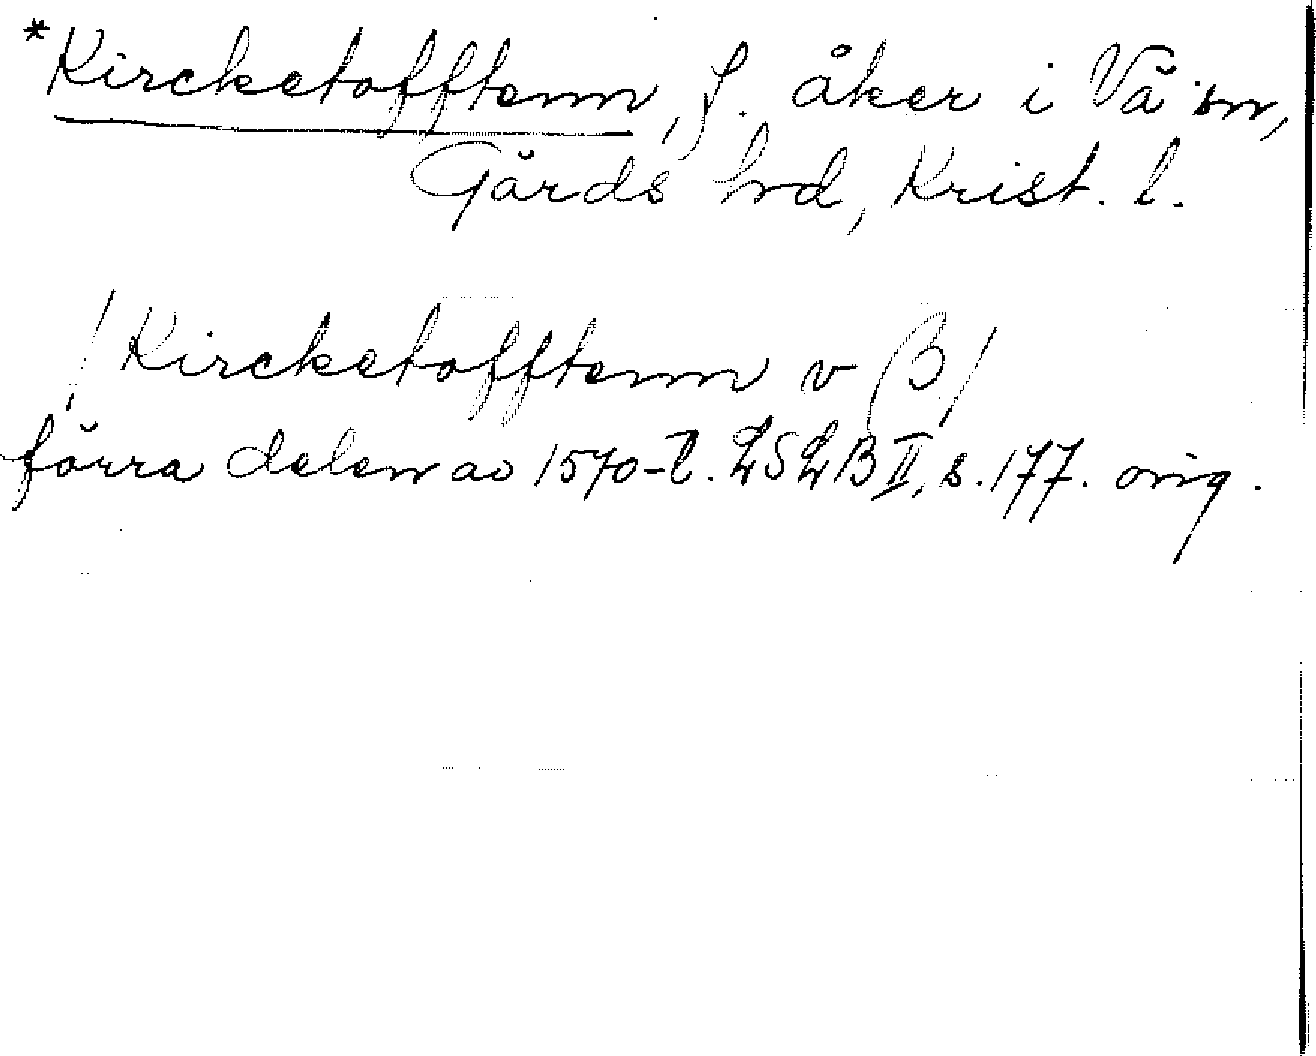 *Kircketofftenn, f. åker i Vä sn,
Gärds hrd, Krist. l.
/Kircketofftenn v ß/
förra delen av 1570-t. LSLB II, s. 177. orig.